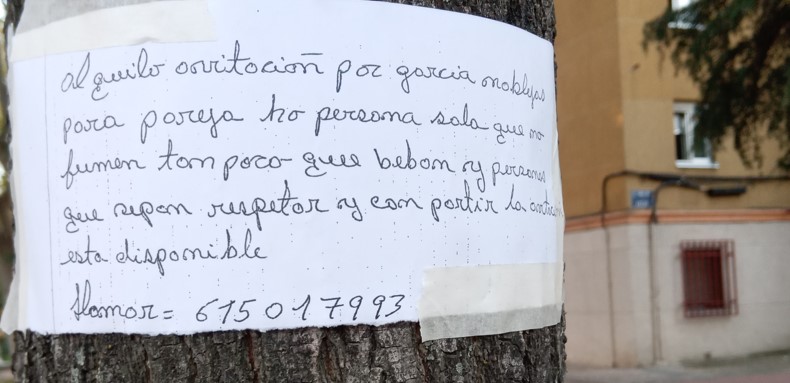 alquilo avritocioñ por garcia noblejas
para pareja ho persona sola que no
fumen tam poco que bebam y personas
que sepan respetar y com portir la
esta disponible
llamar = 615017993